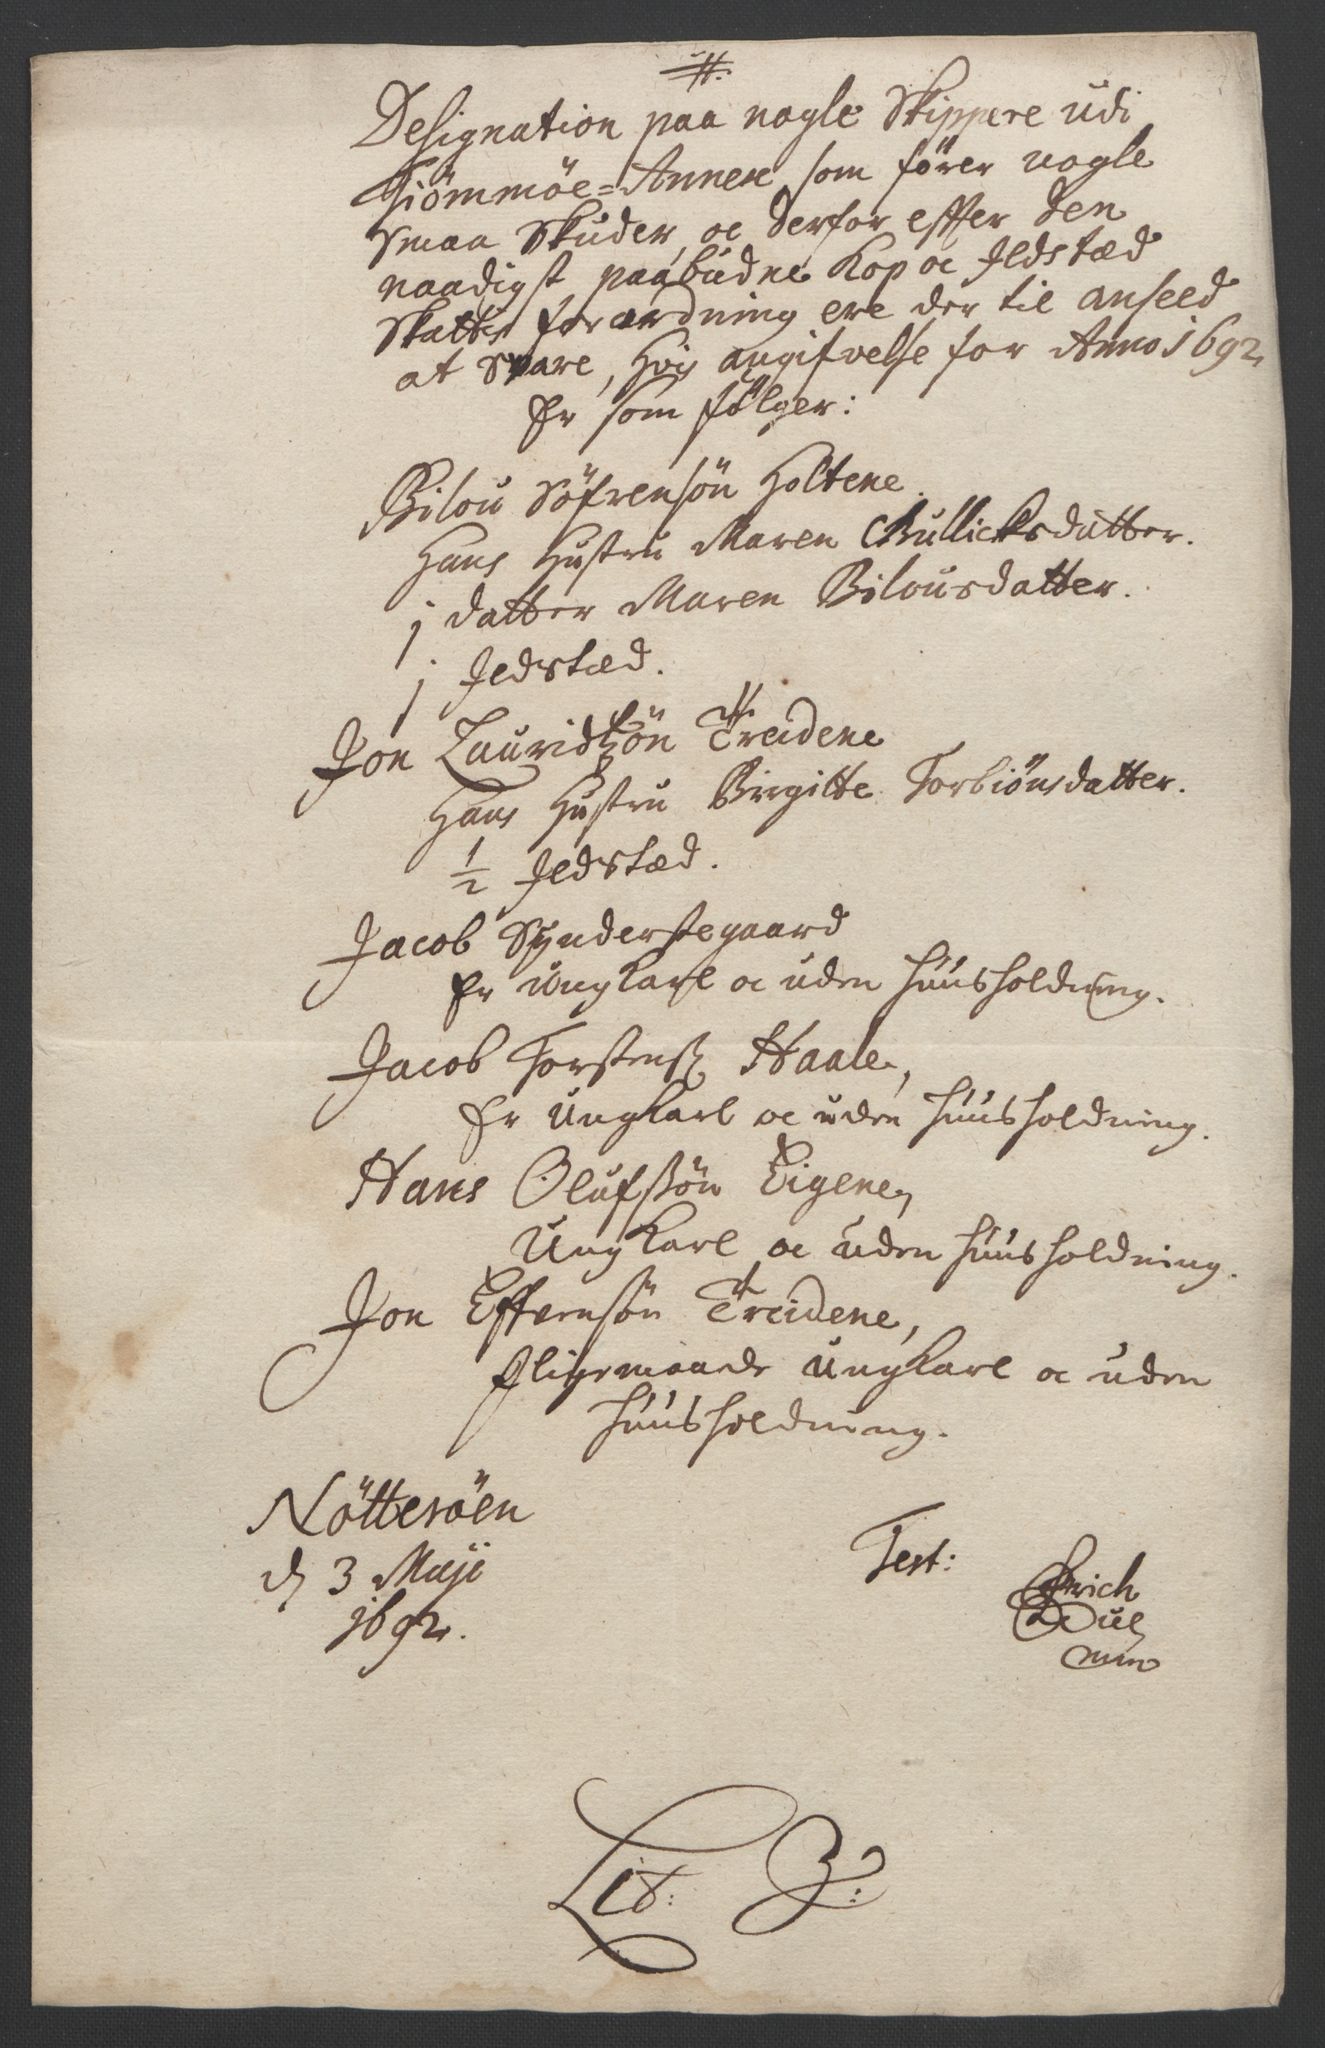 Designation paa nogle Skippere udi
Tiömmöe=Annexe som förer nogle
smaa Skuder, oc derfor effter den
naadigst paabudne Kop oc Ildstæd
Skatts forordning ere der til anseed
at svare, Hvis angifvelse for Anno 1692
Er som fölger:
Bilou Söfrensön Holtene
Hans Hustru Maren Gullichsdatter.
j datter Maren Bilousdatter.
j Ildstæd.
Jon Lauridtzön Treidene
Hans Hustru Birgitte Torbiönsdatter.
1/2 Ildstæd.
Jacob Synderstegaard
Er ungKarl oc uden huusholdning.
Jacob Torstensz Haale,
Er ungKarl oc uden huusholdning.
Hans Olufssön Eigene,
UngKarl oc uden huusholdning.
Jon Effvensön Treidene,
Iligemaade ungKarl oc uden
huusholdning.
Nötteröen
d 3 Maji
1692.
Test:
Erich
mm
Lit: Z: